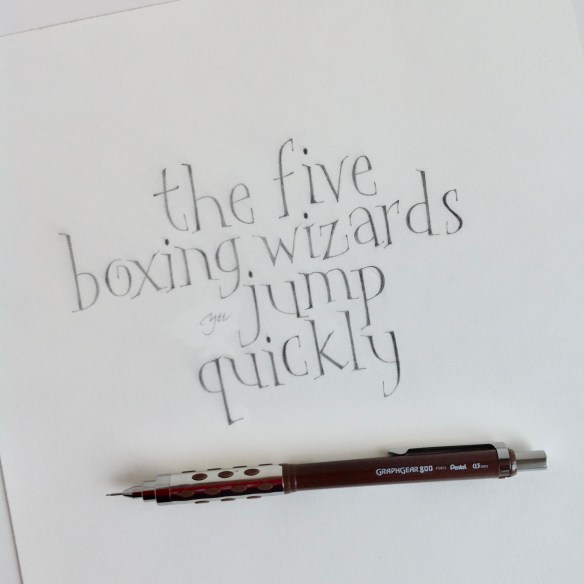 the five
boxing wizards
jump
quickly
GRAPHGEAR 800 Pentel 0.3